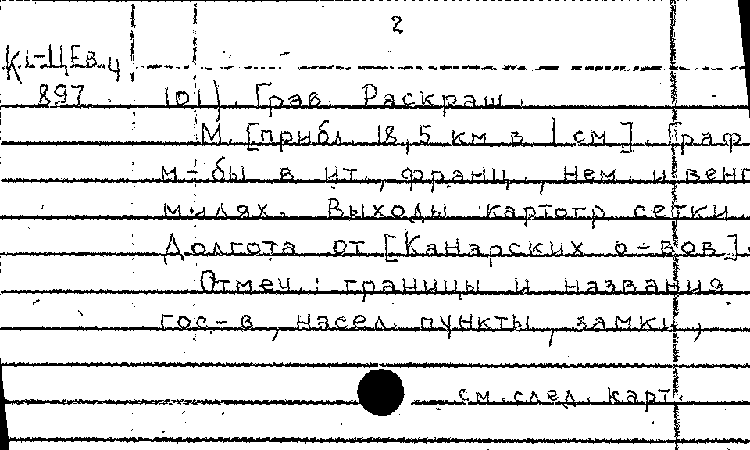 2
К1-ЦЕв 4
897
101). Грав. Раскраш.
М. [прибл. 18,5 км в 1 см]. Граф.
м-бы в ит., франц., нем. и венг.
милях. Выходы картогр сетки.
Долгота от [Канарских о-вов].
Отмеч.: границы и названия
гос-в, насел. пункты, замки,
см. след. карт.